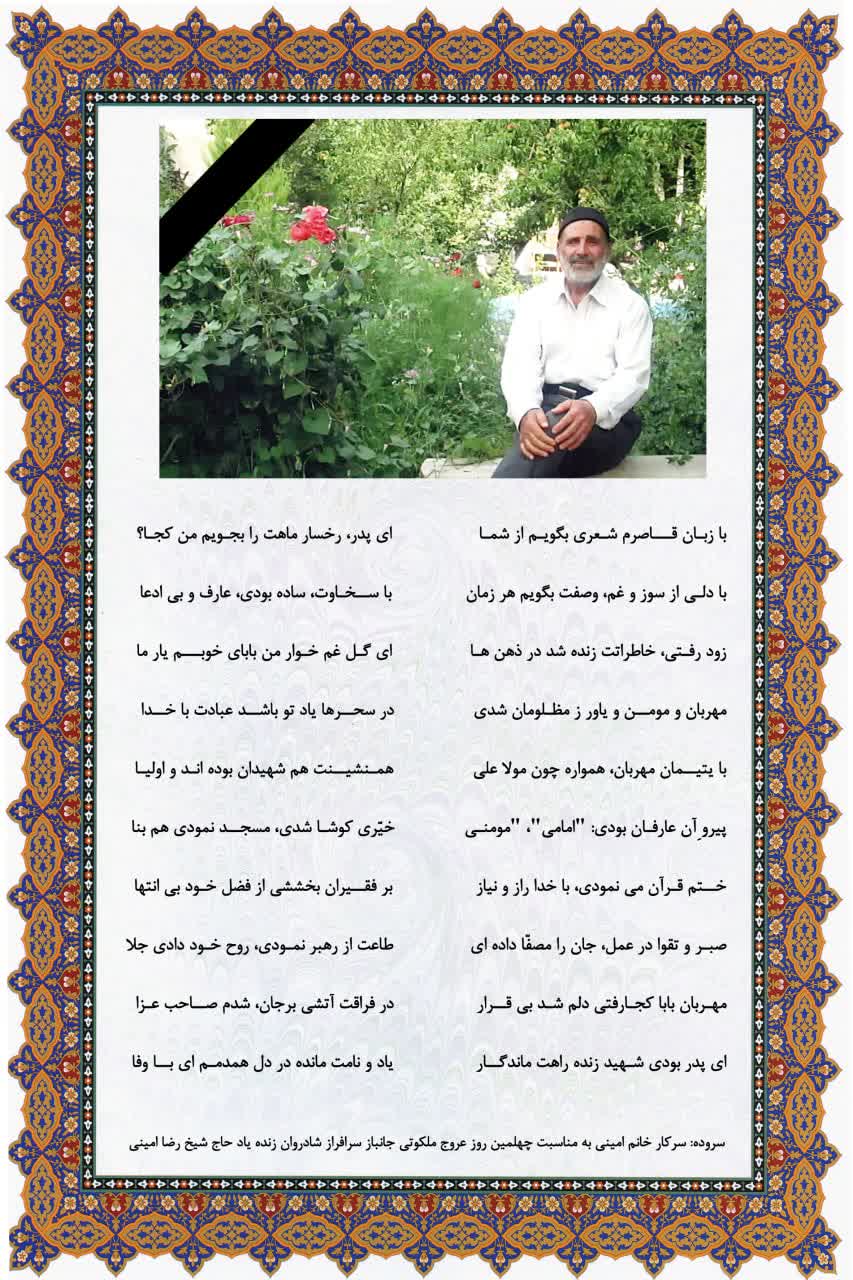 با زبان قاصرم شعری بگویم از شما ای پدر، رخسار ماهت را بجویم من کجا؟
با دلی از سوز و غم، وصفت بگویم هر زمان با سخاوت، ساده بودی، عارف و بی ادعا
زود رفتی، خاطراتت زنده شد در ذهن ها ای گل غم خوار من بابای خوبم یار ما
مهربان و مومن و یاور ز مظلومان شدی در سحرها یاد تو باشد عبادت با خدا
با یتیمان مهربان، همواره چون مولا علی همنشینت هم شهیدان بوده اند و اولیا
پیروِ آن عارفان بودی: "امامی"، "مومنی خیّری کوشا شدی، مسجد نمودی هم بنا
ختم قرآن می نمودی، با خدا راز و نیاز بر فقیران بخششی از فضل خود بی انتها
صبر و تقوا در عمل، جان را مصفّا داده ای طاعت از رهبر نمودی، روح خود دادی جلا
مهربان بابا کجارفتی دلم شد بی قرار در فراقت آتشی برجان، شدم صاحب عزا
ای پدر بودی شهید زنده راهت ماندگار یاد و نامت مانده در دل همدمم ای با وفا
سروده: سرکار خانم امینی به مناسبت چهلمین روز عروج ملکوتی جانباز سرافراز شادروان زنده یاد حاج شیخ رضا امینی